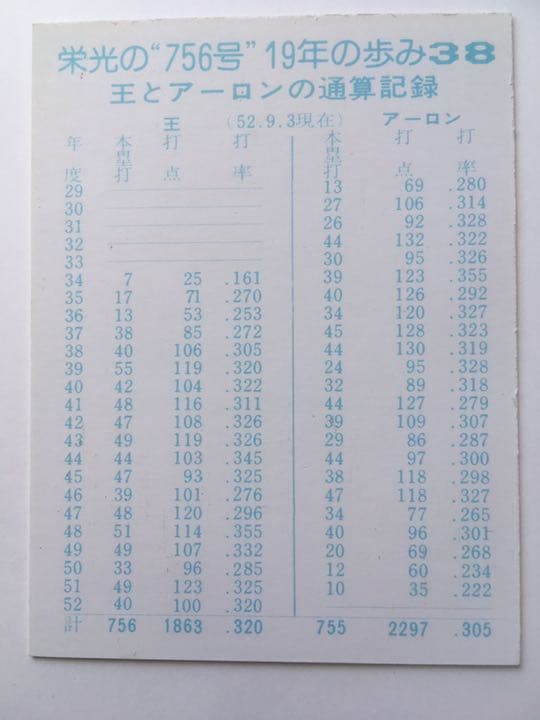 栄光の“756号”19年の歩み38
王とアーロンの通算記録
王 (52.9.3現在) アーロン
年度 本塁打 打点 打率 本塁打 打点 打率
29 13 69 .280
30 27 106 .314
31 26 92 .328
32 44 132 .322
33 30 95 .326
34 7 25 .161 39 123 .355
35 17 71 .270 40 126 .292
36 13 53 .253 34 120 .327
37 38 85 .272 45 128 .323
38 40 106 .305 44 130 .319
39 55 119 .320 24 95 .328
40 42 104 .322 32 89 .318
41 48 116 .311 44 127 .279
42 47 108 .326 39 109 .307
43 49 119 .326 29 86 .287
44 44 103 .345 44 97 .300
45 47 93 .325 38 118 .298
46 39 101 .276 47 118 .327
47 48 120 .296 34 77 .265
48 51 114 .355 40 96 .301
49 49 107 .332 20 69 .268
50 33 96 .285 12 60 .234
51 49 123 .325 10 35 .222
52 40 100 .320
計 756 1863 .320 755 2297 .305